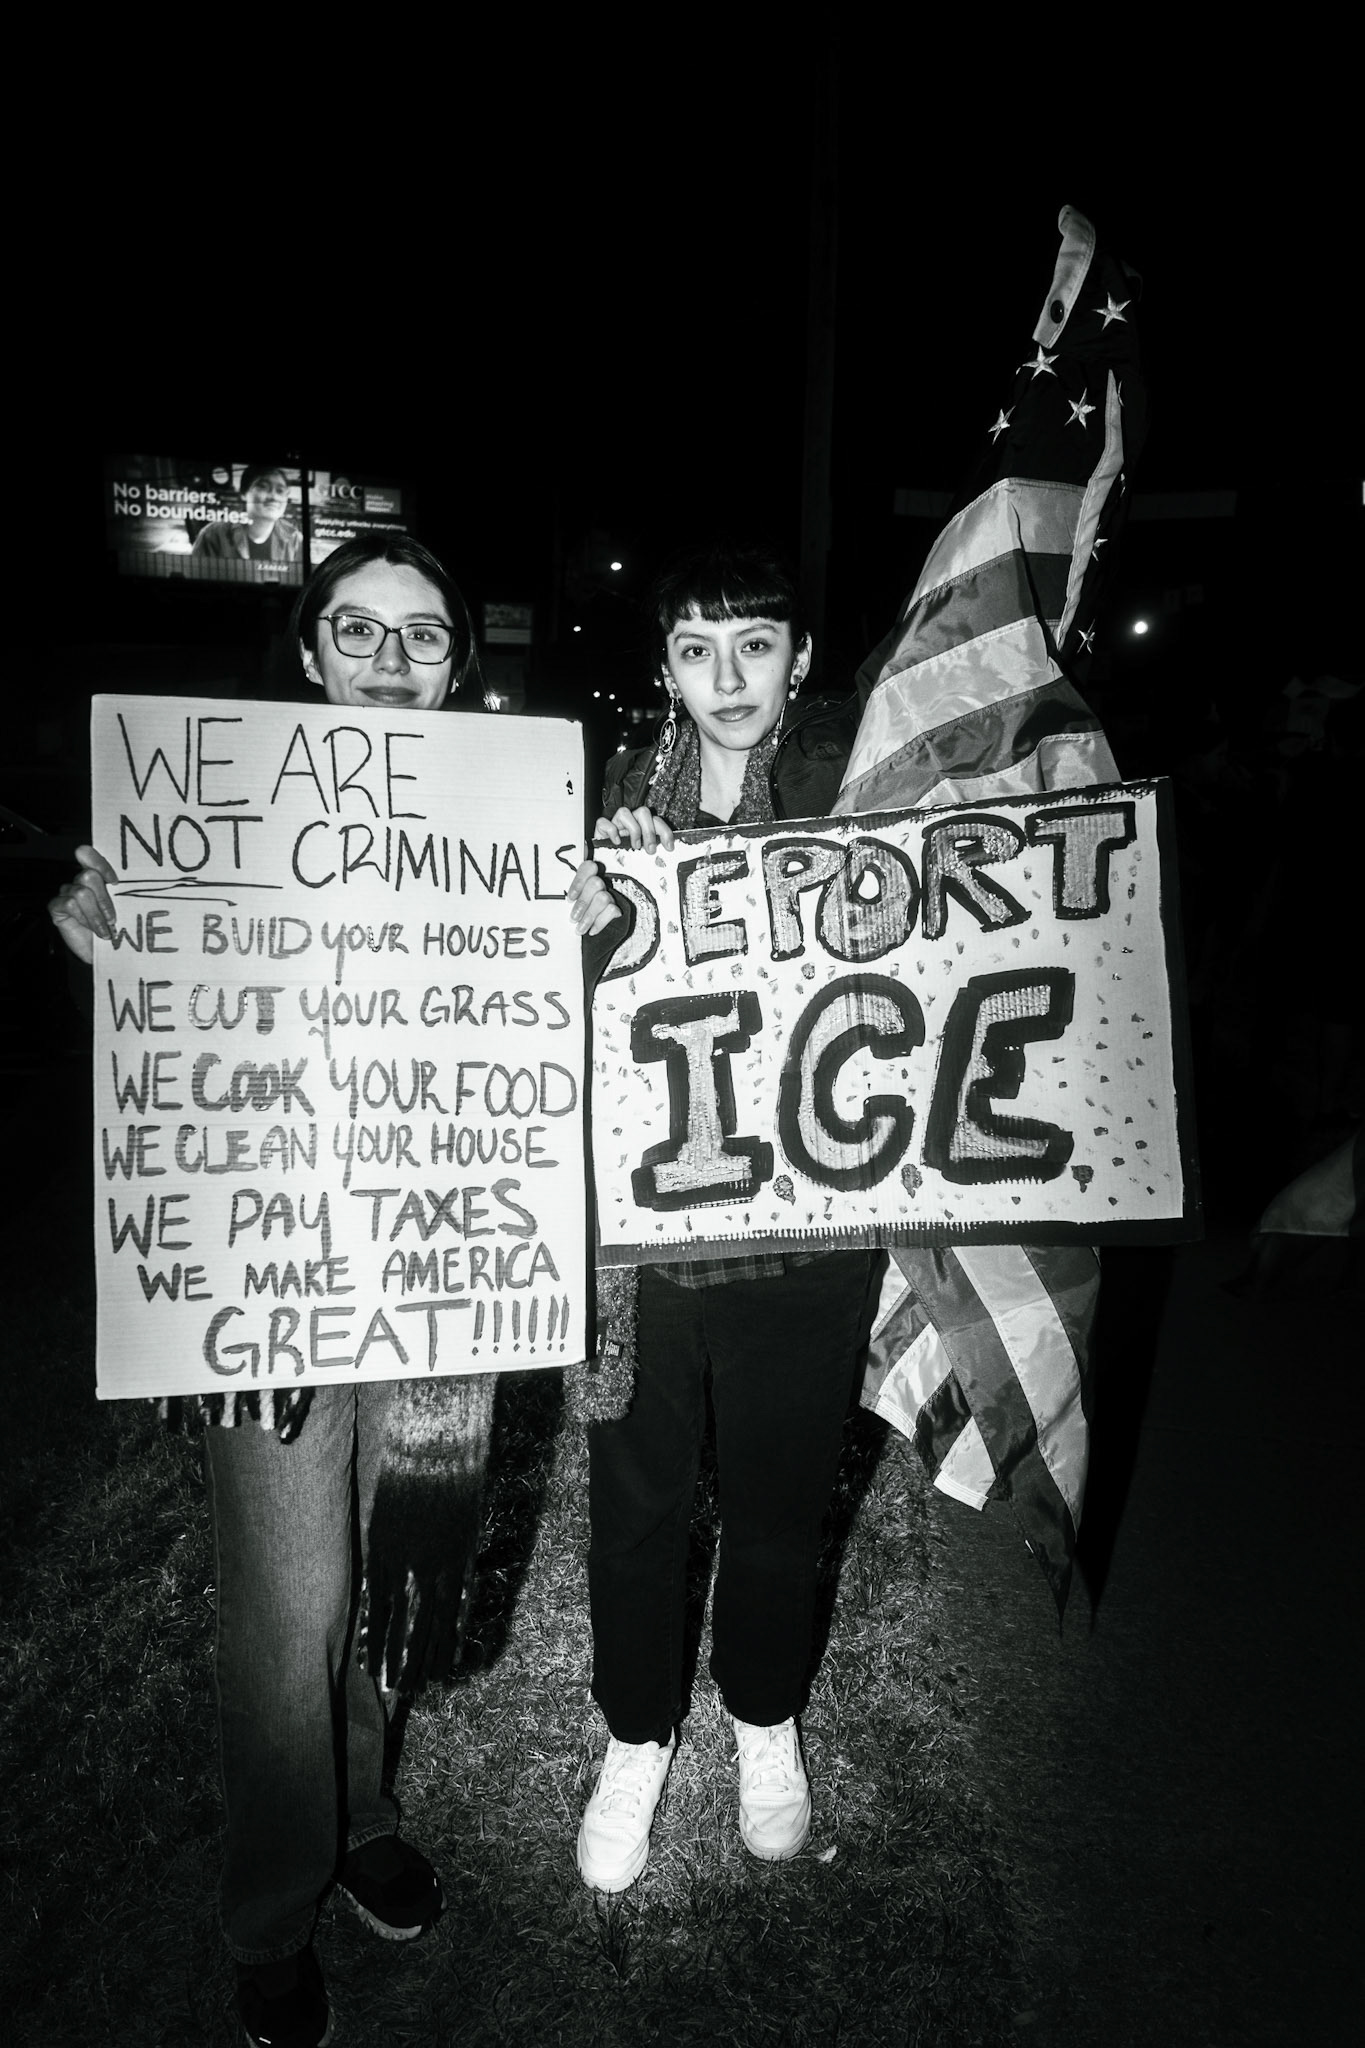 No barriers.
No boundaries.
GTCC
gtcc.edu
LAMAR
WE ARE
NOT CRIMINALS
WE BUILD YOUR HOUSES
WE CUT YOUR GRASS
WE COOK YOUR FOOD
WE CLEAN YOUR HOUSE
WE PAY TAXES
WE MAKE AMERICA
GREAT!!!!!!
DEPORT
ICE